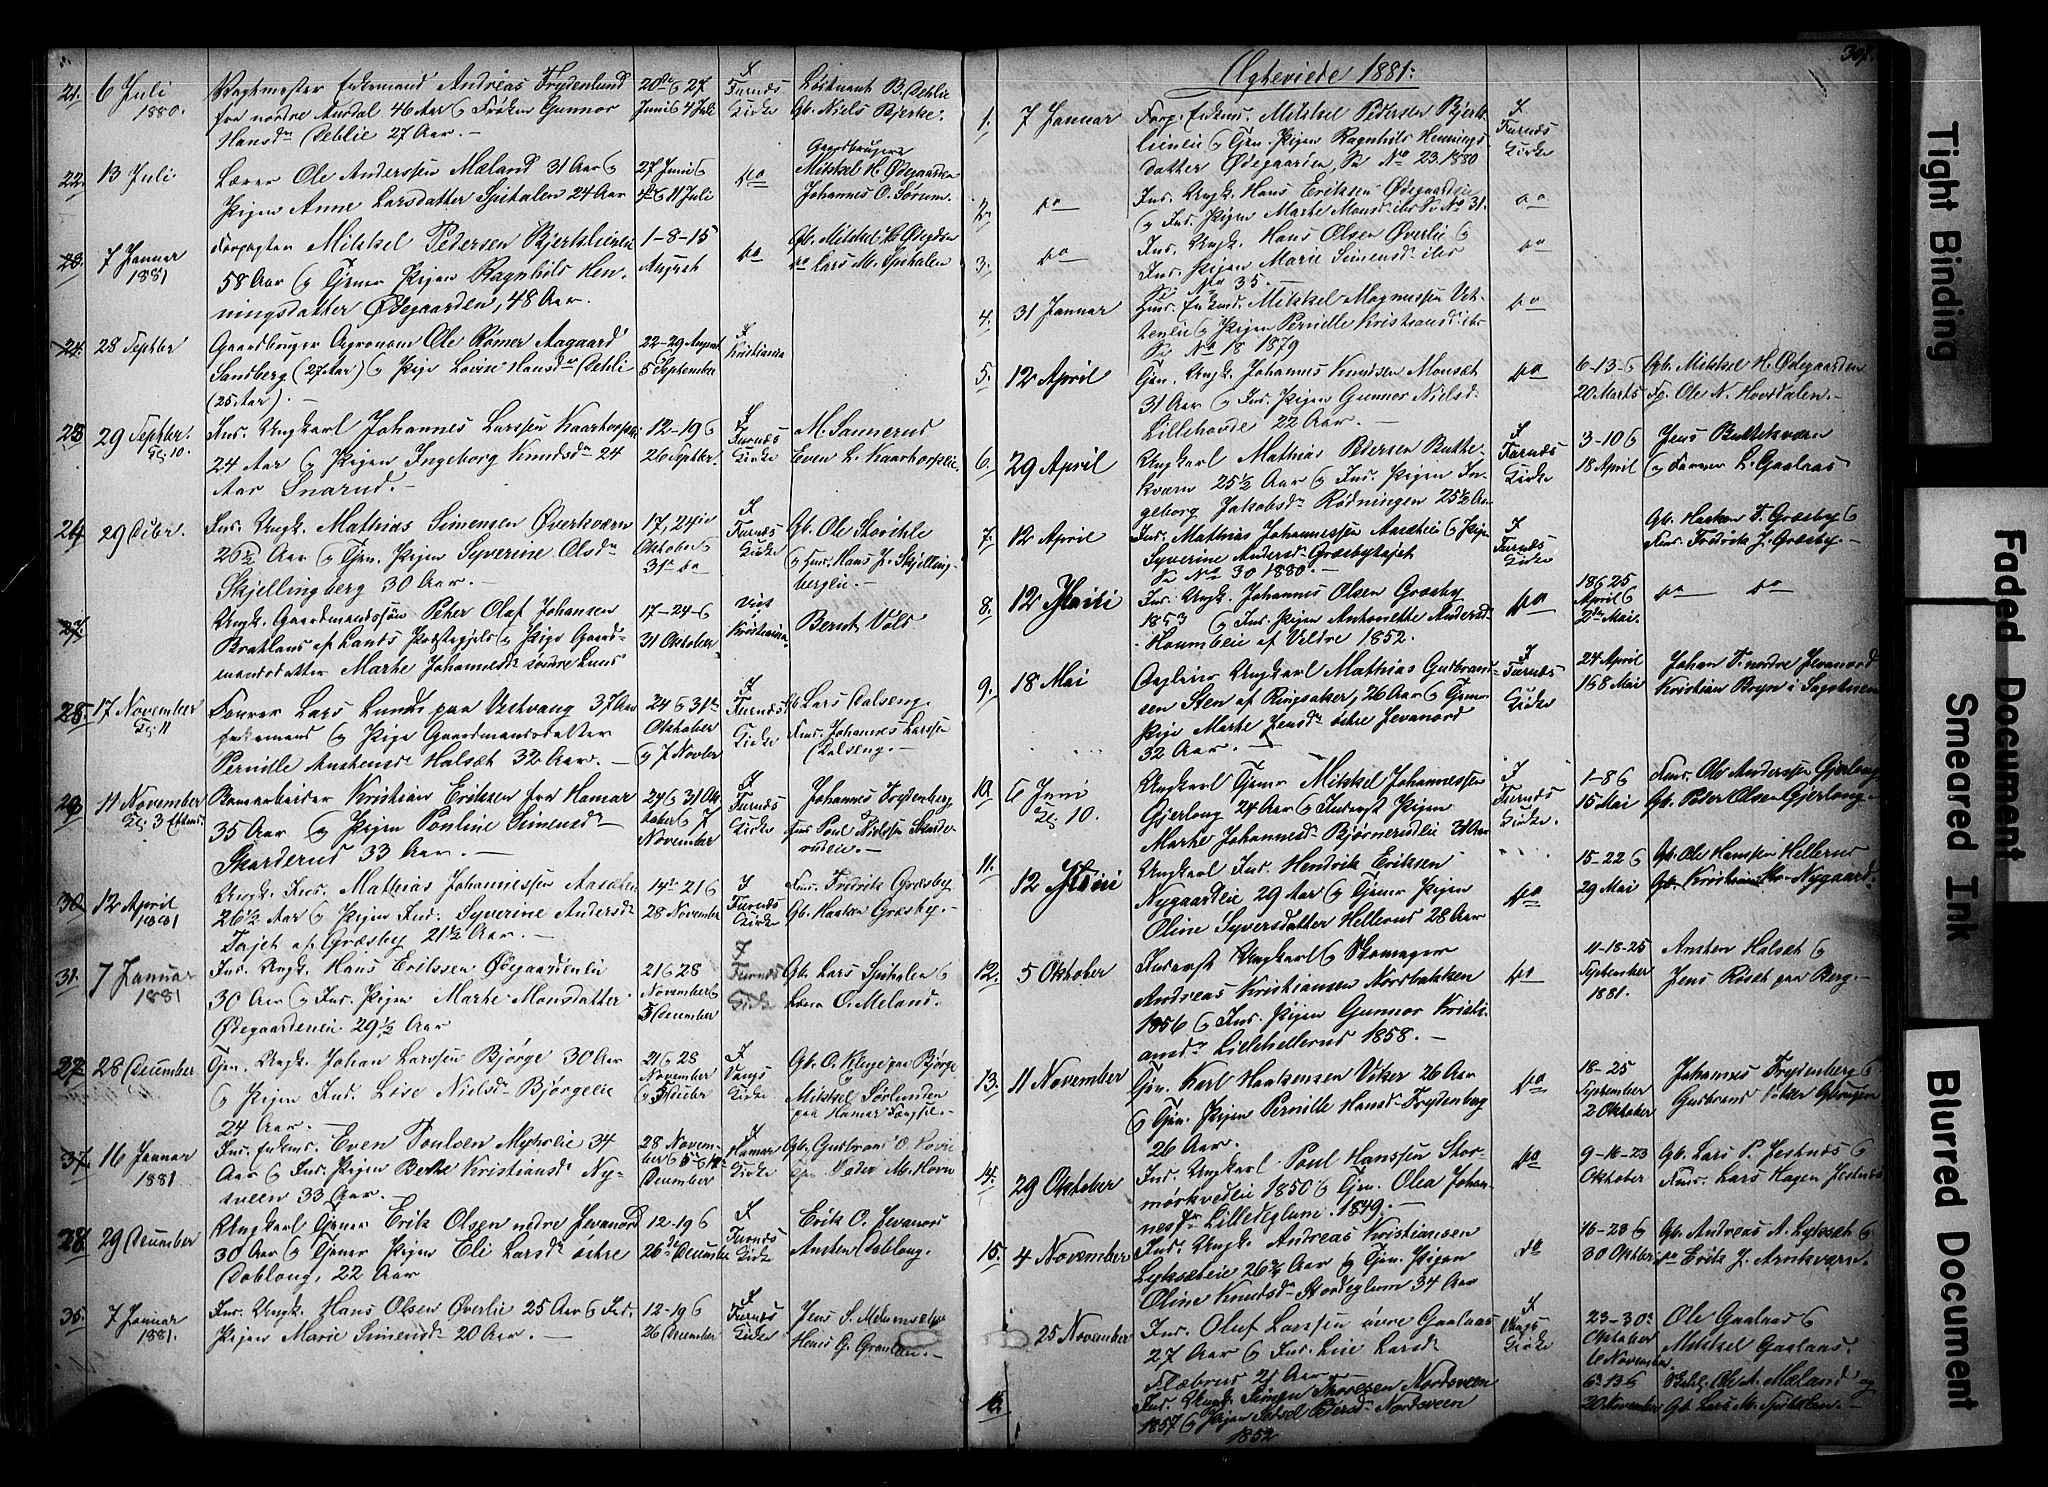 21. 6 Juli 1880.
Vagtmester Enkemand Andreas Frydenlund
fra nordre Aurdal 46 Aar & Frøken Gunnor
Hansdr Dehlie 27 Aar. —
20de & 27
Juni & 4 Juli
I Furnæs Kirke
Løitnant B. Dehlie
Gb. Niels Bjerke.
22. 13 Juli
Lærer Ole Anderssen Mæland 31 Aar &
Pigen Anne Larsdatter Sjitalen 24 Aar
27 Juni &
4de & 11 Juli
do
Gaardbrugere
Mikkel H. Ødegaarden
Johannes O. Sørum.
23. 7 Januar 1881
Forpagter Mikkel Pedersen Bjerkelieneie
58 Aar & Tjener Pigen Ragnhild Hen-
ningsdatter Ødegaarden, 48 Aar.
1-8-15
August
do
Gb. Mikkel H. Ødegden
do Lars M. Sjitalen
24. 28 Septbr
Gaardbruger Agronom Ole Rømer Aagaard
Sandberg (27 Aar) & Pige Lovise Hansdr Dehli
(25 Aar). —
22-29 August
5 September
I Kristiania
25 29 Septbr. Kl. 10.
Ins. Ungkarl Johannes Larssen Kaartorpeie
24 Aar & Pigen Ingeborg Knudsdr 24
Aar Snarud. —
12-19 &
26 Septbr.
I Furnæs Kirke
M. Sannerud
Even L. Kaartorpeie
26 29 Octbr.
Ins. Ungk. Mathias Simensen Øverkværn
26½ Aar & Tjen. Pigen Syverine Olsdr
Skjellingberg 30 Aar. —
17, 24de
Oktober &
31te do
I Furnæs Kirke
Gb. Ole Storihle
& Hus. Hans J. Skjelling-
bergeie. —
27.
Ungk. Gaardmandssøn Peter Olaf Johansen
Bratland af Lands Præstegjeld & Pige Gaard-
mandsdatter Marthe Johannesdr søndre Lund
17-24-&
31 Oktober
Kristiania
Bernt Vold
28. 17 November Kl. 11
Farver Lars Lund paa Vestvang 37 Aar
Enkemand & Pige Gaardmandsdatter
Pernille Anstensdr Halsæt 32 Aar. —
24 & 31te
Oktober
& 7 Novbr
I Furnæs Kirke
Gb. Lars Dalseng
Hus. Johannes Larssen
Dalseng. —
29 11 November Kl. 3 Efterm.
Banearbeider Kristian Eriksen fra Hamar
35 Aar & Pigen Pauline Simensdr
Skarderud 33 Aar. —
24 & 31 Ok
tober & 7
November
I Furnæs Kirke
Johannes Frydenberg
Hus. Poul Nielssen Skarde-
rudeie. —
30 12 April 1881
Ungk. Ins. Mathias Johannessen Aasæteie
26½ Aar & Pigen Ind. Syverine Andersdr
Tajet af Græsby 21½ Aar. —
14de 21 &
28 November
I Furnæs Kirke
Hus. Fredrik Græsby
Gb. Haaken Græsby. —
31. 7 Januar 1881
Ins. Ungk. Hans Erikssen Ødegaardeneie
30 Aar & Ins. Pigen Marthe Monsdatter
Ødegaardeneie 29½ Aar
21 & 28
November &
5 December
I Furnæs Kirke
Gb. Lars Sjitalen &
Lærer O. Meland.
28 December
Tjen. Ungk. Johan Larssen Bjørge 30 Aar
& Pigen Ind. Lise Nielsdr Bjørgeeie
24 Aar. —
21 & 28
November
& 5 Decbr
I Vangs Kirke
Gb. O. Kluge paa Bjørge
Mikkel Sørlunden
paa Hamar
16 Januar 1881
Ins. Enkem. Even Poulsen Myhrlie 34
Aar & Ins. Pigen Berthe Kristiansdr Ny-
sveen 33 Aar. —
28 Novem-
ber & 5 & 12
December
I Hamar Kirke
Gb. Gudbrand O.
Peder M. Hovn
29 December
Ungkarl Tjener Erik Olsen nedre Jevanord
30 Aar & Tjener Pigen Eli Larsdr østre
Dobloug, 22 Aar
12-19 &
26 December
I Furnæs Kirke
Erik O. Jevanord
Ansten Dobloug.
35. 7 Januar 1881.
Ins. Ungk. Hans Olsen Øverlie 25 Aar & Ind.
Pigen Marie Simensdr 20 Aar. —
12-19 &
26 December
I Furnæs Kirke
Jens S.
Hans G.
Ægteviede 1881:
1. 7 Januar
Forp. Enkem. Mikkel Pedersen Bjerke-
lieneie & Tjen. Pigen Ragnhild Hennings-
datter Ødegaarden, Se No 23. 1880
I Furnæs Kirke
2. do
Ins. Ungk. Hans Eriksen Ødegaardeneie
& Ins. Pigen Marthe Monsdr ibid Se No 31.
do
3. do
Ins. Ungk. Hans Olsen Øverlie &
Ins. Pigen Marie Simensdr ibid
Se No 35. —
do
4. 31 Januar
Hus. Enkemd. Mikkel Magnussen Vet-
teneie & Pigen Pernille Kristiansdr ibid
Se No 18 1879
do
5. 12 April
Tjen. Ungk. Johannes Knudsen Monsæt
31 Aar & Ins. Pigen Gunnor Nielsdr
Lillehaade 22 Aar. —
do
6-13-&
20 Marts
Gb. Mikkel H. Ødegaarden
Fp. Ole N. Hovsdalen. —
6. 29 April
Ungkarl Mathias Pedersen Butte-
kværn 25½ Aar & Ins. Pigen In-
geborg Jakobsdr Rødningen 25½ Aar
I Furnæs Kirke
3-10 &
18 April
Jens Buttekværn
& L. Gaalaas
7. 12 April
Ins. Mathias Johannessen Aasæteie & Pigen
Syverine Andersdr Græsbytajet
Se No 30 1880. —
I Furnæs Kirke
Gb. Haaken T. Græsby &
Hus. Fredrik J. Græsby. —
8. 12 Juni
Ins. Ungk. Johannes Olsen Græsby
1853 & Ins. Pigen Antonette Andersdr
Haumleie af Veldre 1852.
do
18 & 25
April &
2den Mai.
do do
9. 18 Mai
Ungkarl Mathias Gudbrand-
sen Sten af Ringsaker, 26 Aar & Tjener
Pige Marthe Jensdr østre Jevanord
32 Aar. —
I Furnæs Kirke
24 April
1 & 8 Mai
Johan T. nordre Jevanord
Kristian Bryn i
10. 6 Juni Kl. 10.
Ungkarl Tjener Mikkel Johannessen
Gjerlaug 24 Aar & Inderst Pigen
Marthe Johannesdr Bjørnerudeie 31 Aar
I Furnæs Kirke.
1-8 &
15 Mai
Hus. Ole Anderssen Gjerlaug
Gb. Peter Olsen Gjerlaug. —
11. 12 Juni
Ungkarl Ins. Hendrik Eriksen
Nygaardeie 29 Aar & Tjener Pigen
Oline Syversdatter Hellerud 28 Aar
do
15-22 &
29 Mai
Gb. Ole Hanssen Hellerud
Gb. Kristian Nygaard.
12. 5 Oktober
Inderst Ungkarl & Skomager
Andreas Kristiansen Nordbakken
1856 & Ins. Pigen Gunnor Kristi-
ansdr Lillehellerud 1858. —
do
11-18-25
September
1881.
Ansten Halsæt &
Jens Røset paa Berg. —
13. 11 November
Tjen. Karl Haakensen Viker 26 Aar
& Tjen. Pigen Pernille Hansdr Frydenberg
26 Aar.
do
18-25
September
2 Oktober
Johannes Frydenberg &
Gudbrand
14. 29 Oktober
Ins. Ungkarl Poul Hanssen Stor-
mørkvedeie 1850 & Tjen. Olea Johan-
nesdr Lilledeglum. 1849.
do
9-16-23
Oktober
Gb. Lars P. Jestnæs &
Hus. Lars Hagen Jestnæs
15. 4 November
Ins. Ungk. Andreas Kristiansen
Lyksæteie 26¾ Aar & Tjen. Pigen
Oline Knudsdr Stordeglum 34 Aar
do
16-23 &
30 Oktbr
Gb. Andreas A. Lyksæt &
do Erik J. Arnkværn.
25 November
Ins. Oluf Larssen øvre Gaalaas
27 Aar & Ins. Lise Larsdr
Flæbrud 21 Aar
I Vangs Kirke
23-30te
Oktober
6 November
Ole Gaalaas &
Mikkel Gaalaas.
16.
Ins. Ungk. Simen Thoresen Nordsveen
1857 & Pigen Sidsel Pedersdr Nordsveen
1852
6te 13 &
20 November
Ole A. Mæland og
Gb. Lars M. Sjitalen. —
Tight Binding
Faded Document
Smeared Ink
Blurred Document